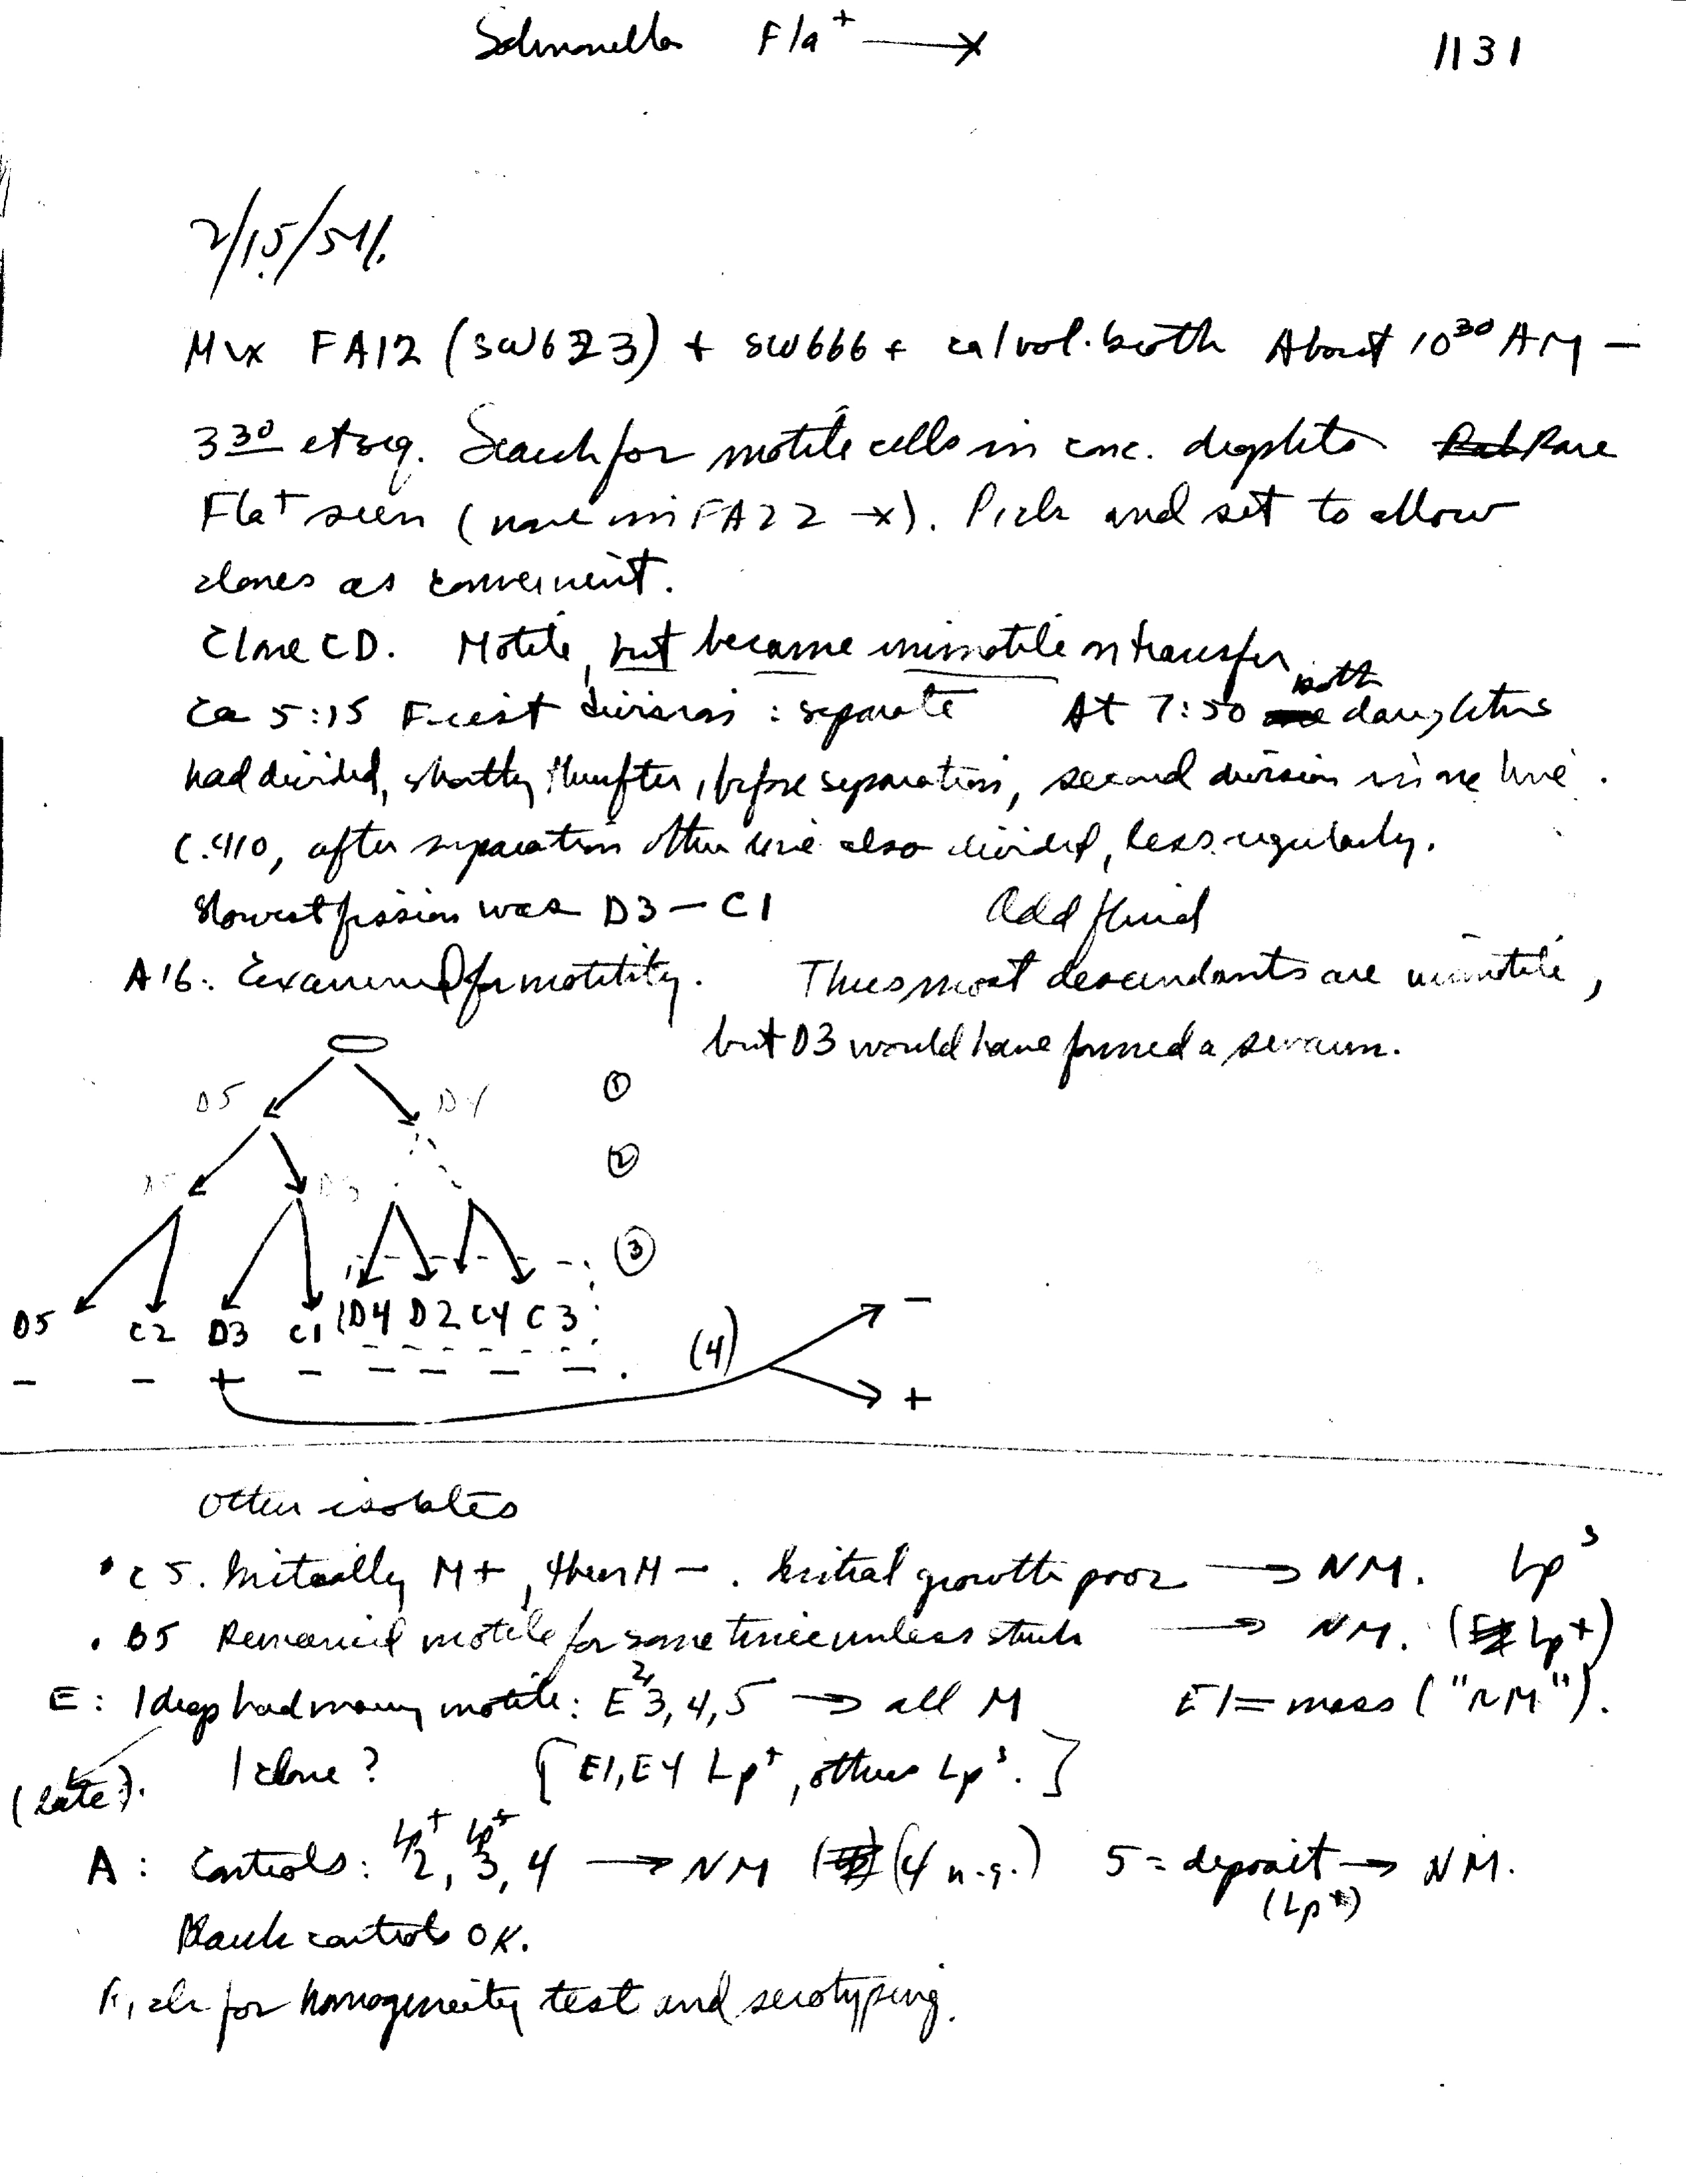 Salmonella Fla+ —x
1131
2/15/54.
Mix FA12 (SW623) + SW666 + ca 1 vol. broth About 10 30 AM —
3 30 et seq. Search for motile cells in conc. droplets Rare
Fla+ seen (none in FA22 —x). Pick and set to allow
clones as convenient.
Clone CD. Motile, but became immotile on transfer
Ca 5:15 First division : separate At 7:50 both daughters
had divided, shortly thereafter, before separation, second division in one line.
after separation other line also divided, less regularly.
Slowest fission was D3 — C1 Add fluid
A16: Examined for motility. Thus most descendants are immotile,
but D3 would have formed a swarm.
D5 D4 ①
D5 D3 ②
③
D5 C2 D3 C1 D4 D2 C4 C3 (4) −
− − + − − − − − . +
Other isolates
• C5. Initially M+, then M−. Initial growth poor → NM. Lp s
• D5 Remained motile for some time unless stuck → NM. (Lp+)
E: 1 drop had many motile: E 2, 3, 4, 5 → all M E1 = mass ("NM").
(late). 1 clone? [E1, E4 Lp+, others Lp s.]
A: Controls: 2, 3, 4 → NM (4 n.g.) 5 = deposit → NM.
Lp+
Blank controls OK.
Pick for homogeneity test and serotyping.